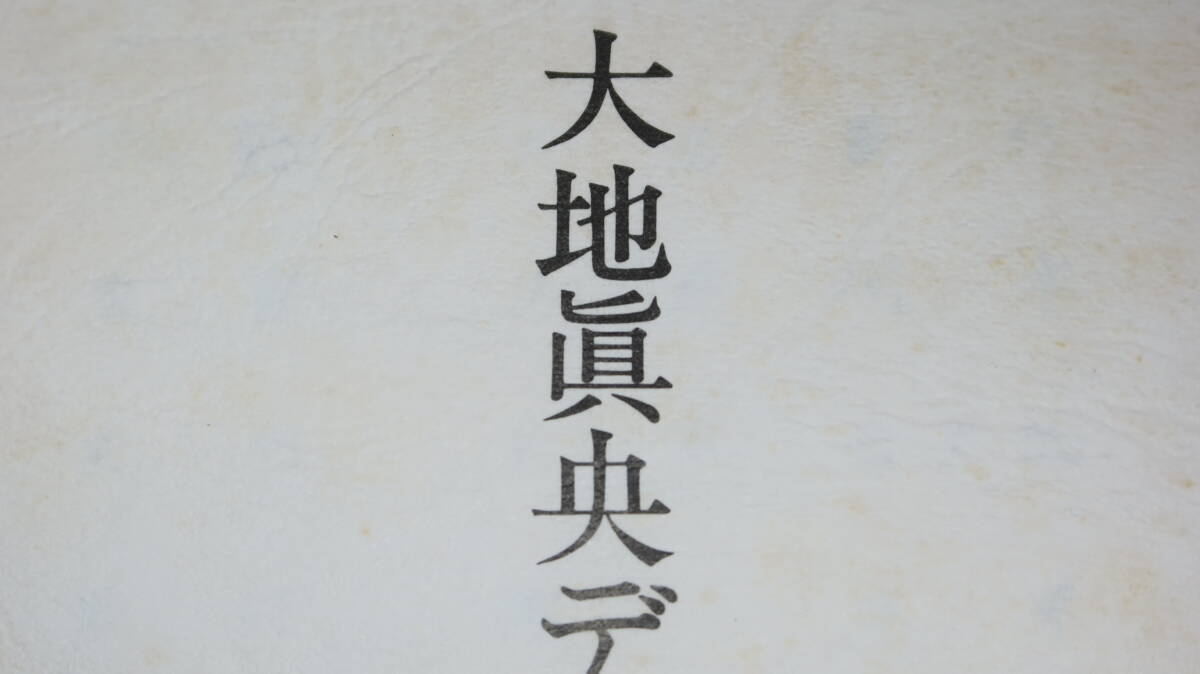 大地眞央デ